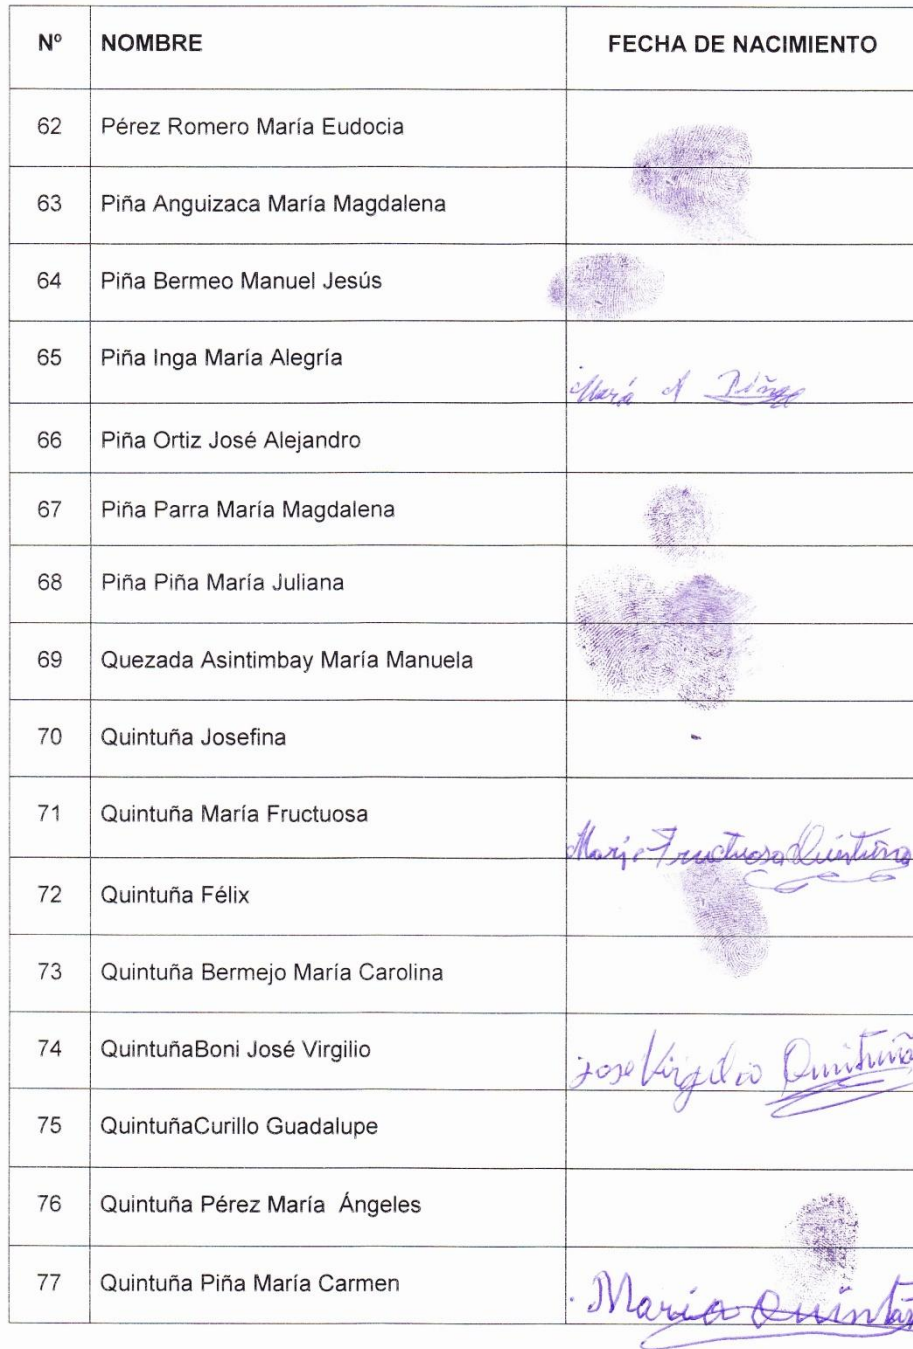 Nº NOMBRE FECHA DE NACIMIENTO
62 Pérez Romero María Eudocia
63 Piña Anguizaca María Magdalena
64 Piña Bermeo Manuel Jesús
65 Piña Inga María Alegría
María A Piña
66 Piña Ortiz José Alejandro
67 Piña Parra María Magdalena
68 Piña Piña María Juliana
69 Quezada Asintimbay María Manuela
70 Quintuña Josefina
71 Quintuña María Fructuosa
María Fructuosa Quintuña
72 Quintuña Félix
73 Quintuña Bermejo María Carolina
74 QuintuñaBoni José Virgilio
jose Virgilio Quintuña
75 QuintuñaCurillo Guadalupe
76 Quintuña Pérez María Ángeles
77 Quintuña Piña María Carmen
María